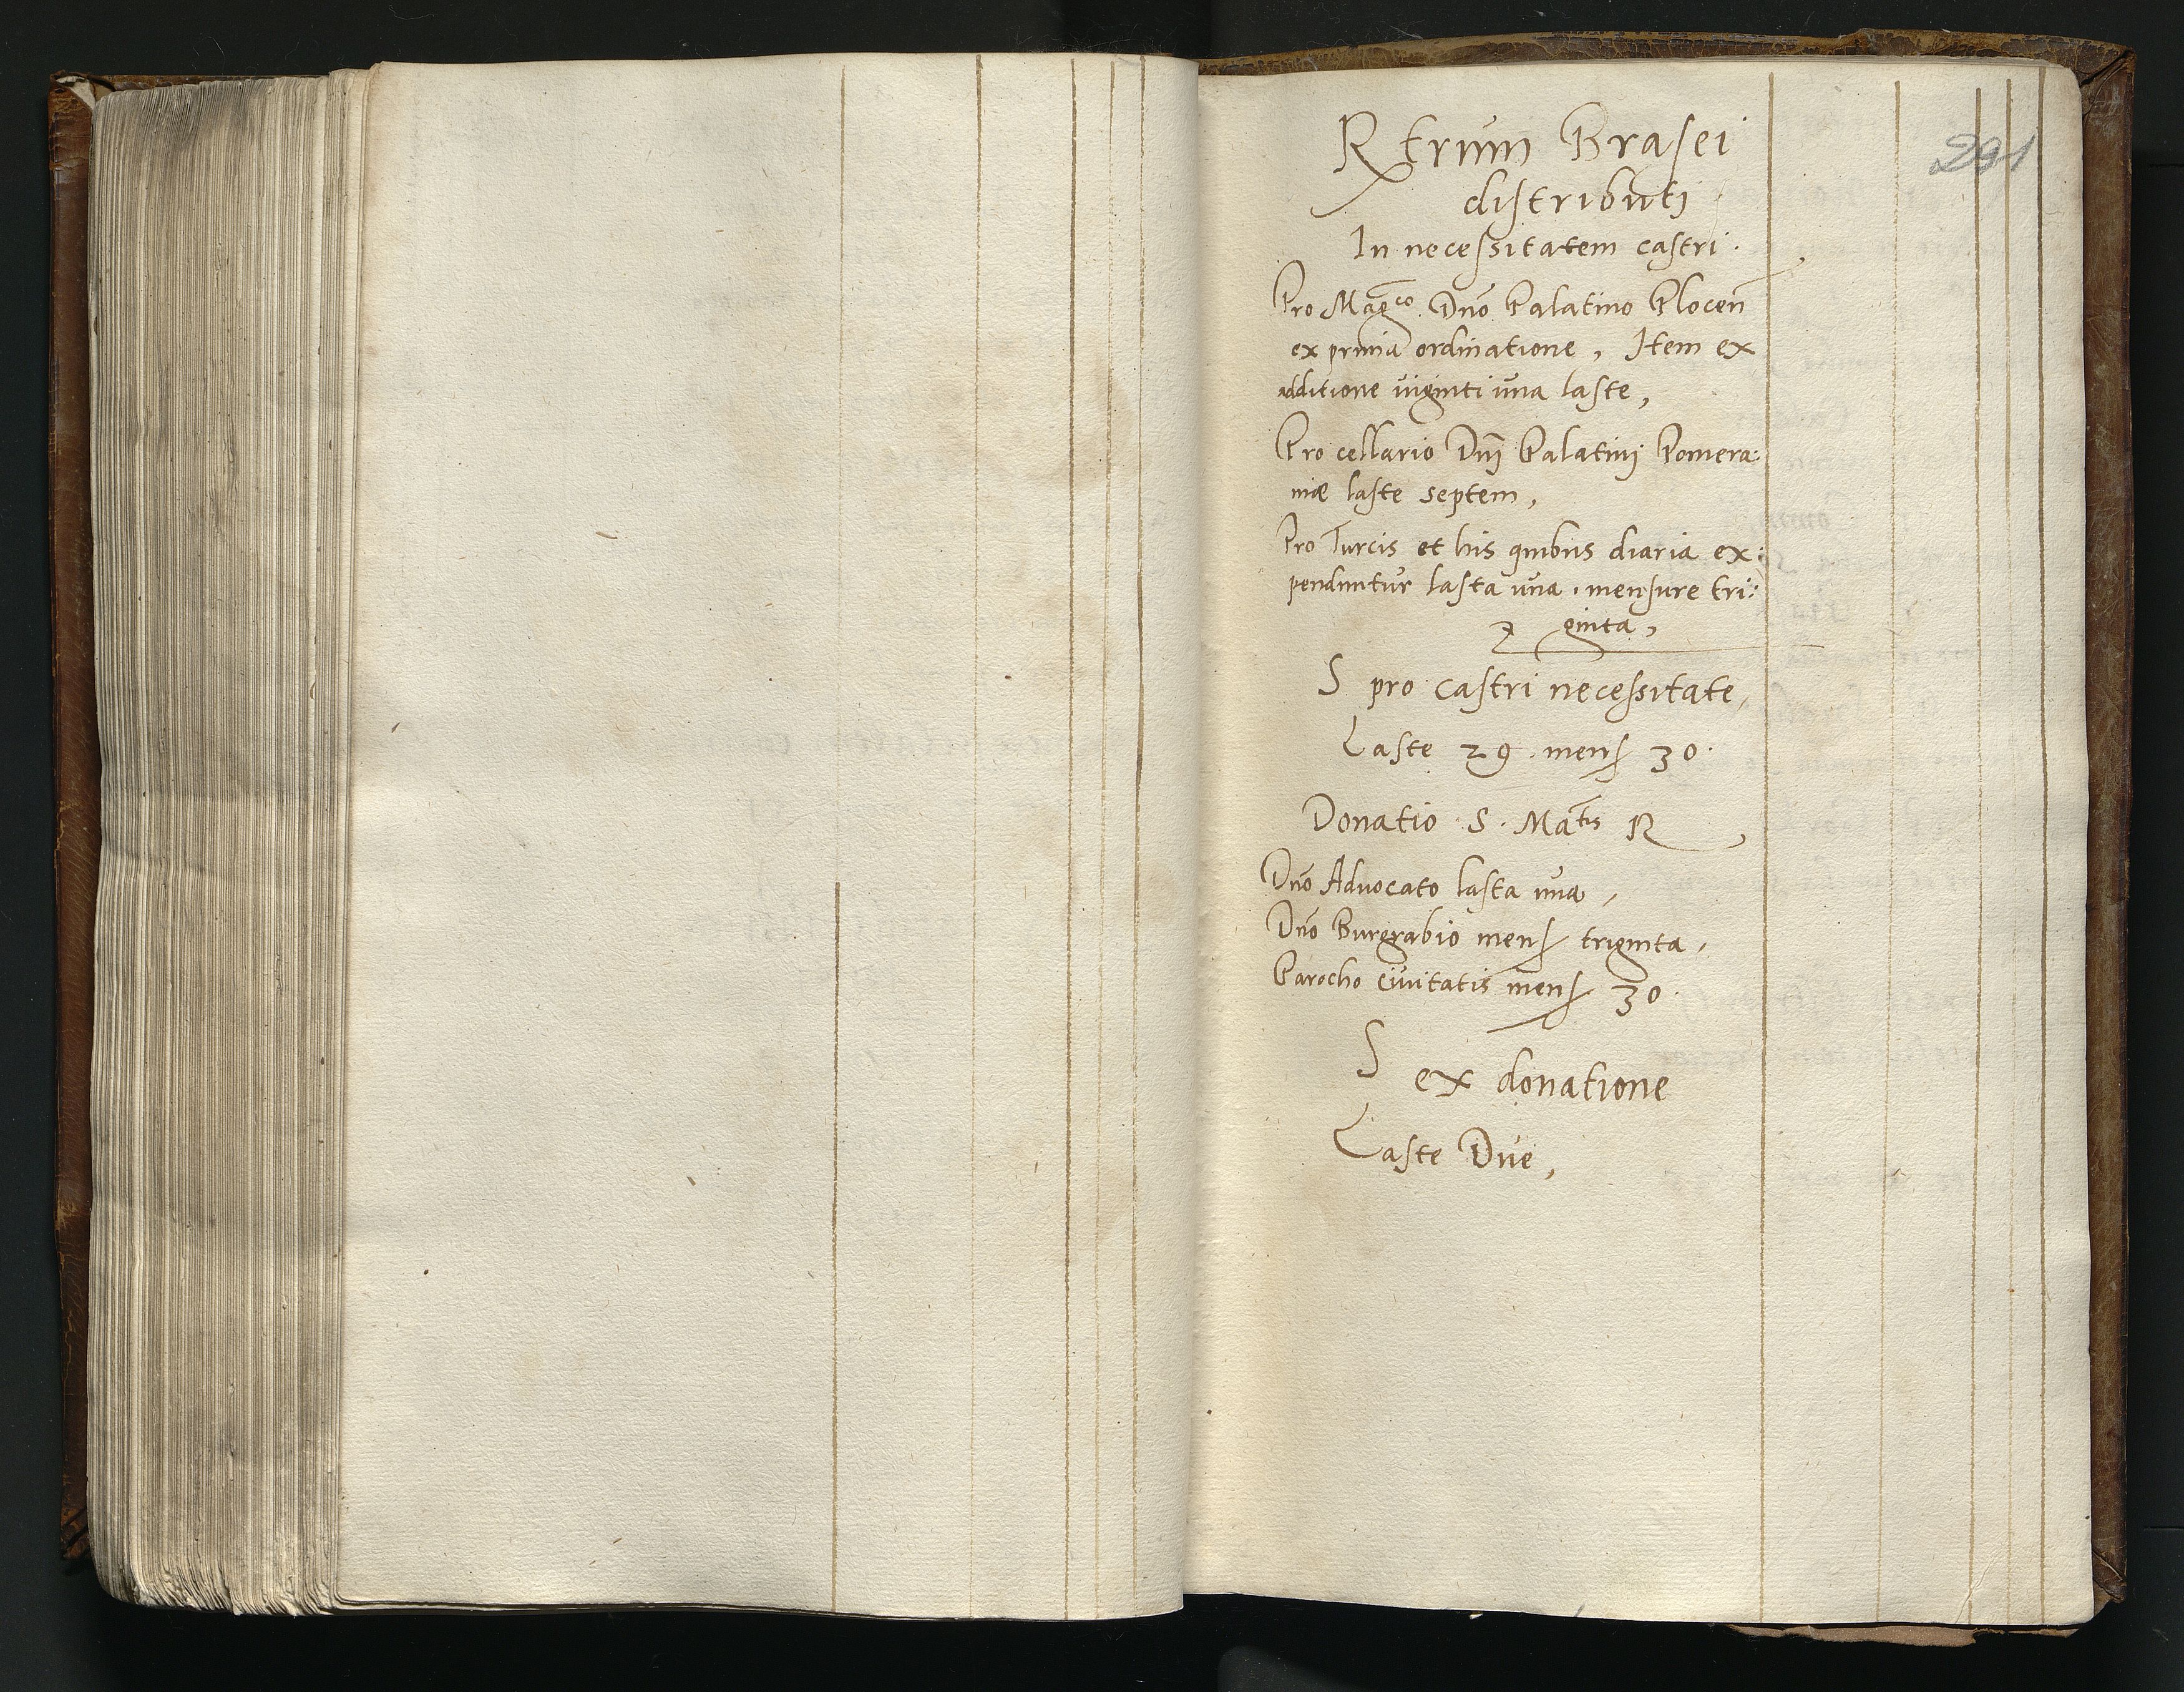 291
Rtrum Brasei
distributi
In necessitatem castri.
Pro Mag^co Dno Palatino Plocen
ex prima ordinatione, Item ex
additione viginti una laste,
Pro cellario Dni Palatini Pomera:
niæ laste septem,
Pro Turcis et his quibus diaria ex:
penduntur lasta una. mensure tri:
ginta,
S pro castri necessitate,
Laste 29. mens 30.
Donatio S. Ma^tis R
Dno Advocato lasta una,
Dno Burgrabio mens triginta,
Parocho civitatis mens 30.
S ex donatione
Laste Due,